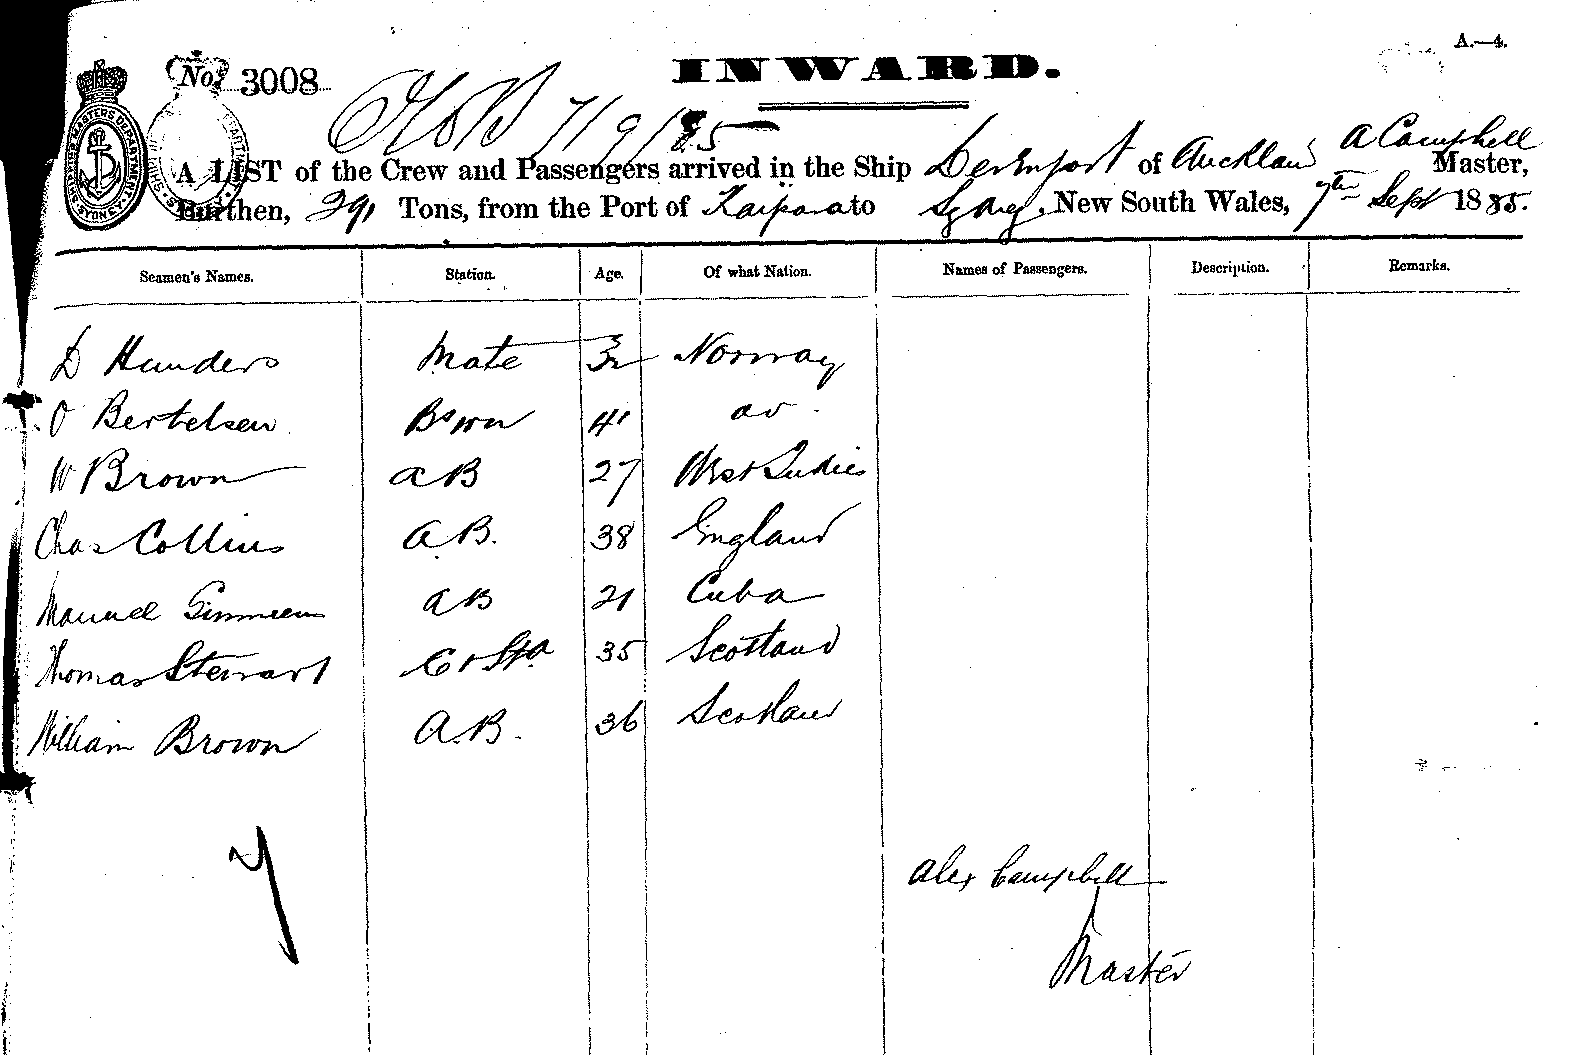 A.—4.
No. 3008
INWARD.
7/9/85
A LIST of the Crew and Passengers arrived in the Ship Devonport of Auckland A Campbell Master,
Burthen, 291 Tons, from the Port of Kaipara to Sydney, New South Wales, 7th Sept 1885.
Seamen's Names. Station. Age. Of what Nation. Names of Passengers. Description. Remarks.
D Hunders Mate 32 Norway
O Bertelsen Bswn 41 do
W Brown AB 27 West Indies
Chas Collins A.B. 38 England
Manuel AB 21 Cuba
Thomas Stewart C & Std 35 Scotland
William Brown A.B. 36 Scotland
7
Alex Campbell
Master